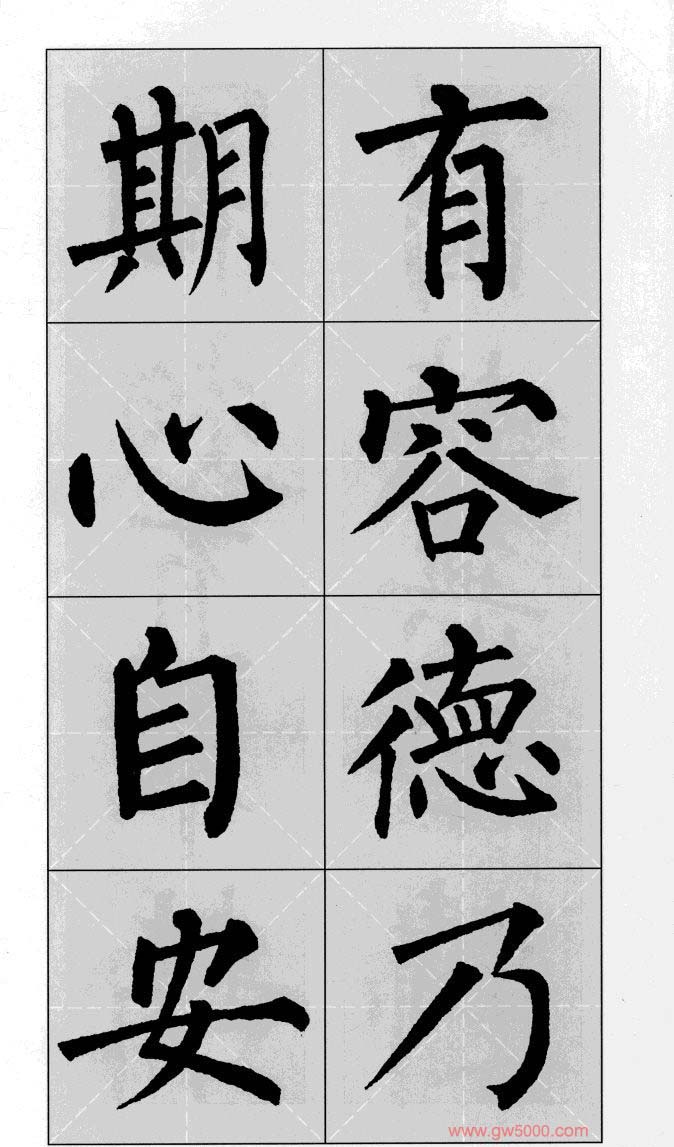 有容德乃
期心自安
www.gw5000.com